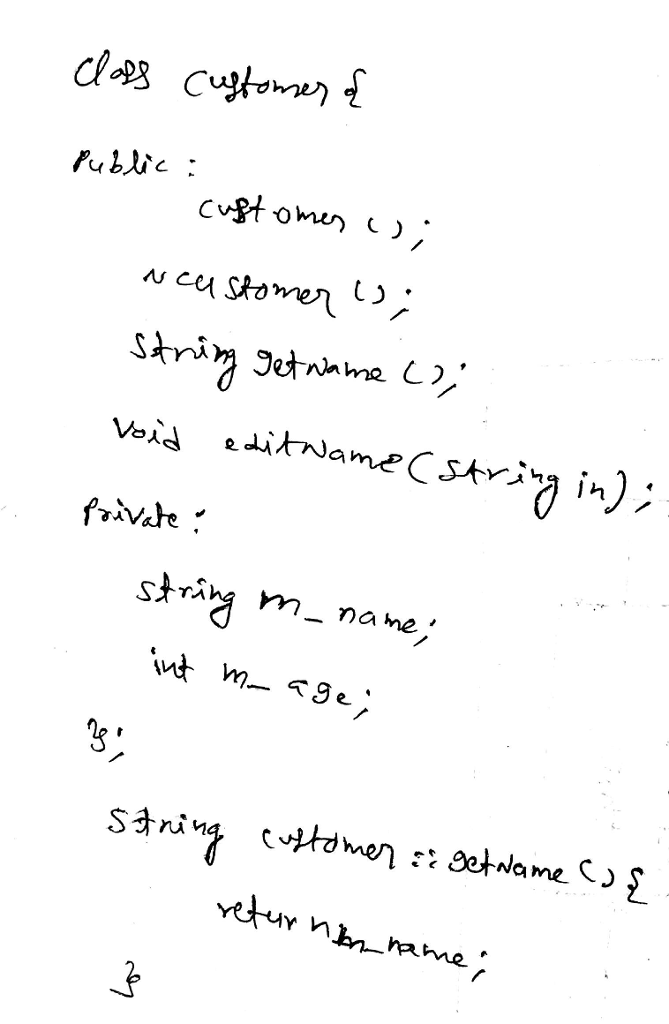 Class Customer {
Public :
Customer ();
~Customer ();
String getName ();
Void editName(String in);
Private :
string m_name;
int m_age;
};
String Customer :: getName () {
return m_name;
}